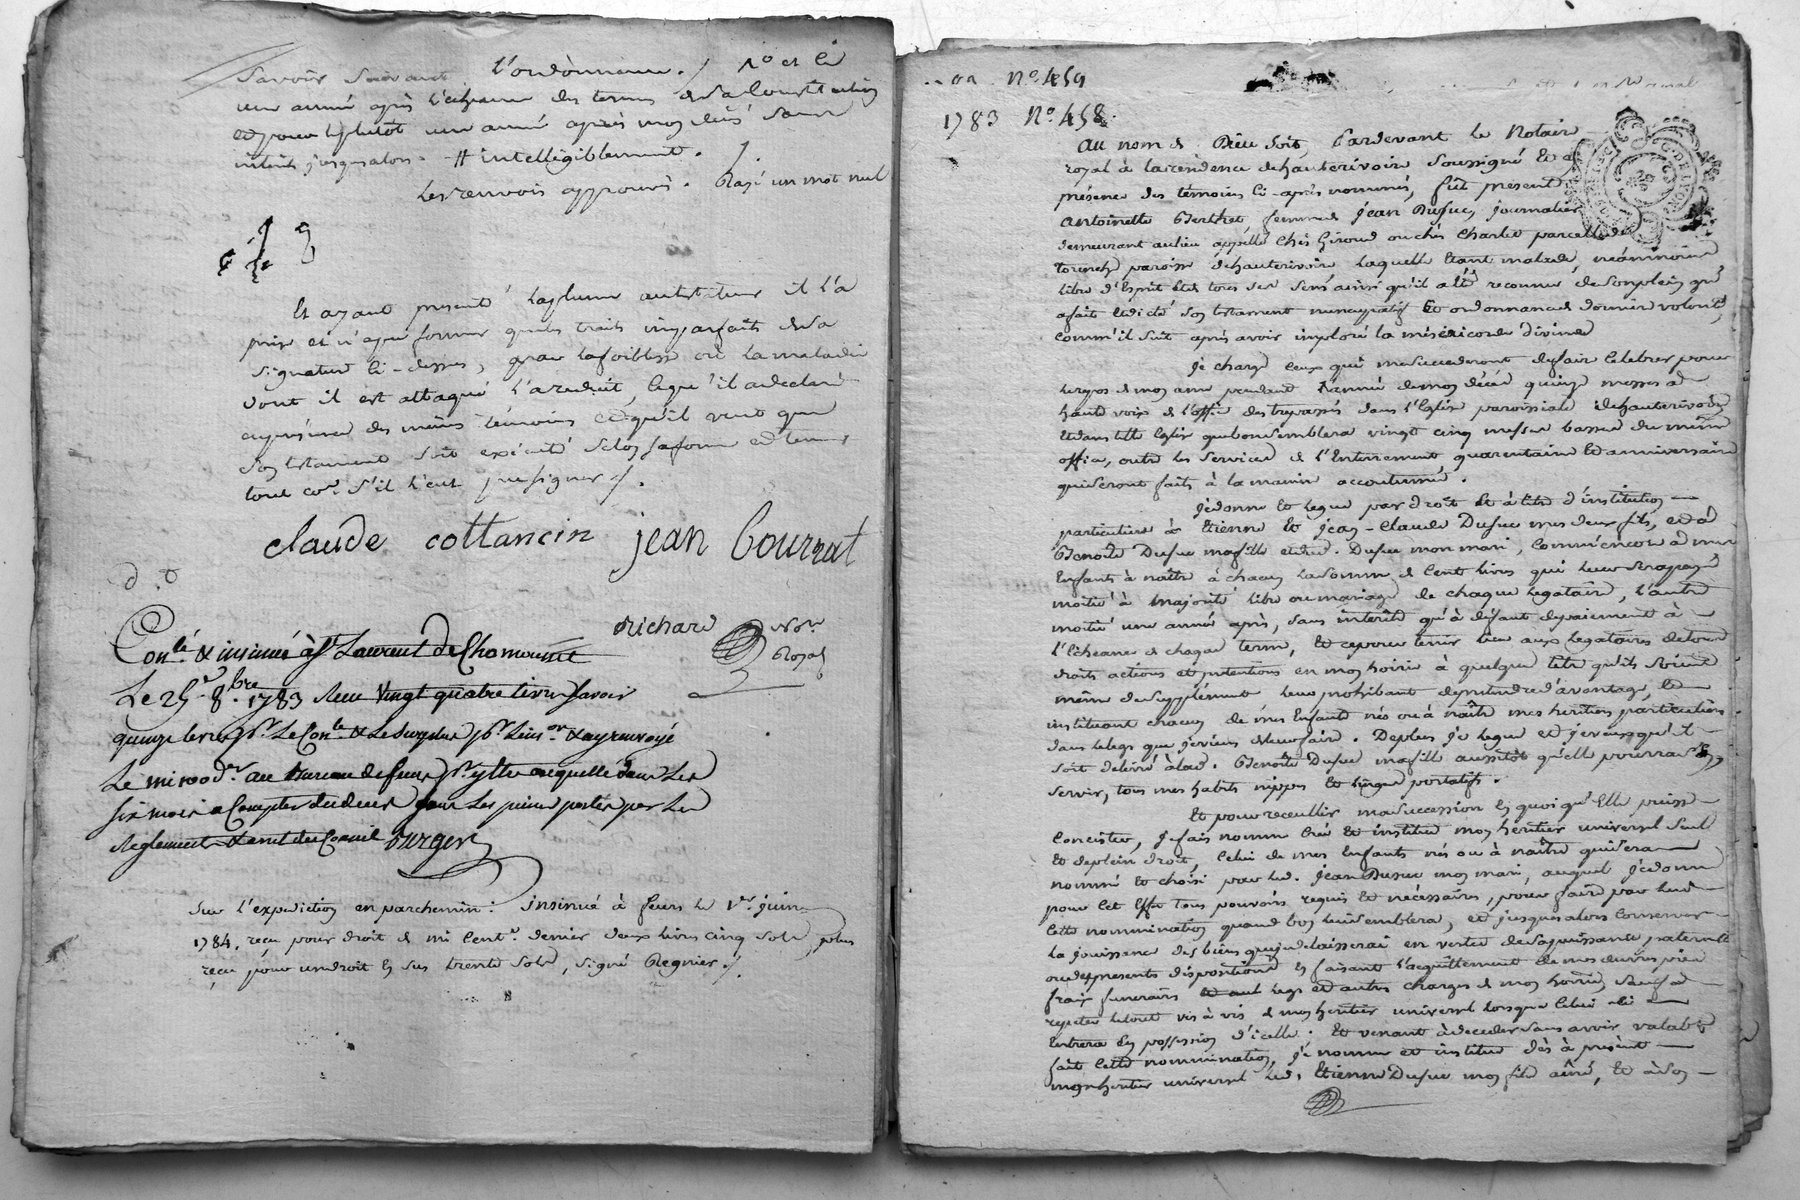 savoir suivant l'ordonnance. / 1° et li
une année après l'echeance des termes de sa Constitution
et pour plutôt une année après mon décès sans
intérêts jusqu'alors. # intelligiblement. /.
les renvois approuvés. Rayé un mot nul
Et ayant presenté la plume au testateur il l'a
prise et n'a pu former que les traits imparfaits de sa
signature ci-dessus, par la foiblesse où la maladie
dont il est attaqué l'a reduit, ce qu'il a declaré
en presence des mêmes témoins et qu'il veut que
son testament soit exécuté selon sa forme et teneur
tout co.e s'il l'eut pu signer /.
claude cottancin jean bourrat
richard No.re
Royal
Con.lé & insinué à S.t Laurent de Chamousset
Le 25. 8.bre 1783 Reçu vingt quatre livres savoir
quinze livres p.r le Con.le & le surplus p.r l'ins.on & ay renvoyé
le mi 100 d.er au bureau de feurs
six mois a Compter du deces sous les peines portées par les
Reglements & arret du Conseil Burger
Sur l'expedition en parchemin: insinué à feurs le 1.er juin
1784, reçu pour droit de mi cent.e denier deux livres cinq sols, plus
reçu pour un droit en sus trente sols, signé Regnier /.
N° 459
1783 N° 458
Au nom de Dieu soit, Pardevant le Notaire
royal à la residence de hauterivoire soussigné et en
présence des témoins ci-après nommés, fût presente
Antoinette Berthet femme de jean Dufuc journalier
demeurant au lieu appellé chés Giroud ou chés Charlet parcelle de
torenche paroisse de hauterivoire laquelle étant malade, néanmoins
libre d'Esprit et de tous ses sens ainsi qu'il a été reconnu, de son plein gré
a fait et dicté son testament nuncupatif et ordonnance de derniere volonté,
comm'il suit après avoir imploré la miséricorde divine
Je charge ceux qui me succederont de faire celebrer pour
le repos de mon ame pendant l'année de mon décès quinze messes à
haute voix de l'office des trepassés dans l'Eglise paroissiale de hauterivoire
et dans telle Eglise que bon semblera vingt cinq messes basses du même
office, outre les services de l'Enterrement quarantaine et anniversaire
qui seront faits à la maniere accoutumée.
Je donne et legue par droit et à titre d'institution
particuliere à Etienne et Jean-Claude Dufuc mes deux fils, et à
Benoite Dufuc ma fille et dud. Dufuc mon mari, comm'encore à mes
Enfants à naître à chacun la somme de cent livres qui leur sera payée
moitié à majorité libre ou mariage de chaque legataire, l'autre
moitié une année après, sans intérêts qu'à défaut de paiement à
l'échéance de chaque terme, et ce pour tenir lieu aux legataires de tous
droits actions et pretentions en mon hoirie à quelque titre qu'ils soient
même de supplément leur prohibant de pretendre d'avantage, et
instituant chacun de mes Enfants nés ou à naître mes heritiers particuliers
dans le legs que je viens de leur faire. De plus je legue et je veux qu'il
soit delivré à lad. Benoite Dufuc ma fille aussitôt qu'elle pourra s'en
servir, tous mes habits nippes et linges portatifs.
Et pour receullir ma succession en quoi qu'Elle puisse
concister, je fais nomme crée et institue mon heritier universel seul
et de plein droit, celui de mes Enfants nés ou à naître qui sera
nommé et choisi par led. Jean Dufuc mon mari, auquel je donne
pour cet Effet tous pouvoirs requis et nécessaires, pour faire par lui
cette nommination quand bon lui semblera, et jusques alors conserver
la jouissance des biens que je delaisserai en vertu de sa puissance paternelle
ou des presents dispositions en faisant l'acquittement de mes œuvres pies
frais funeraires legs et autres charges de mon hoirie, sauf à
repeter le tout vis à vis de mon heritier universel lorsque celui-ci
Entrera en possession d'icelle; Et venant à deceder sans avoir valable
fait cette nommination, je nomme et institue dès à présent
mon heritier universel led. Etienne Dufuc mon fils aîné, et à son